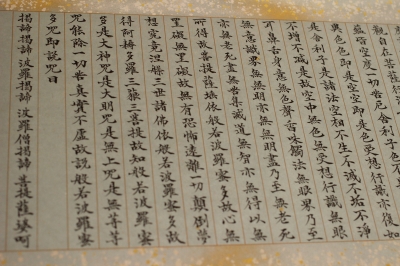 親自在菩
蘊皆空度一切苦厄舍利子色不
異色色即是空空即是色受想行識亦復如
是舍利子是諸法空相不生不滅不垢不淨
不增不減是故空中無色無受想行識無眼
耳鼻舌身意無色聲香味觸法無眼界乃至
無意識界無無明亦無無明盡乃至無老死
亦無老死盡無苦集滅道無智亦無得以無
所得故菩提薩埵依般若波羅蜜多故心無
罣礙無罣礙故無有恐怖遠離一切顛倒夢
想究竟涅槃三世諸佛依般若波羅蜜多故
得阿耨多羅三藐三菩提故知般若波羅蜜
多是大神咒是大明咒是無上咒是無等等
咒能除一切苦真實不虛故說般若波羅蜜
多咒即說咒曰
揭諦揭諦 波羅揭諦 波羅僧揭諦 菩提薩婆訶